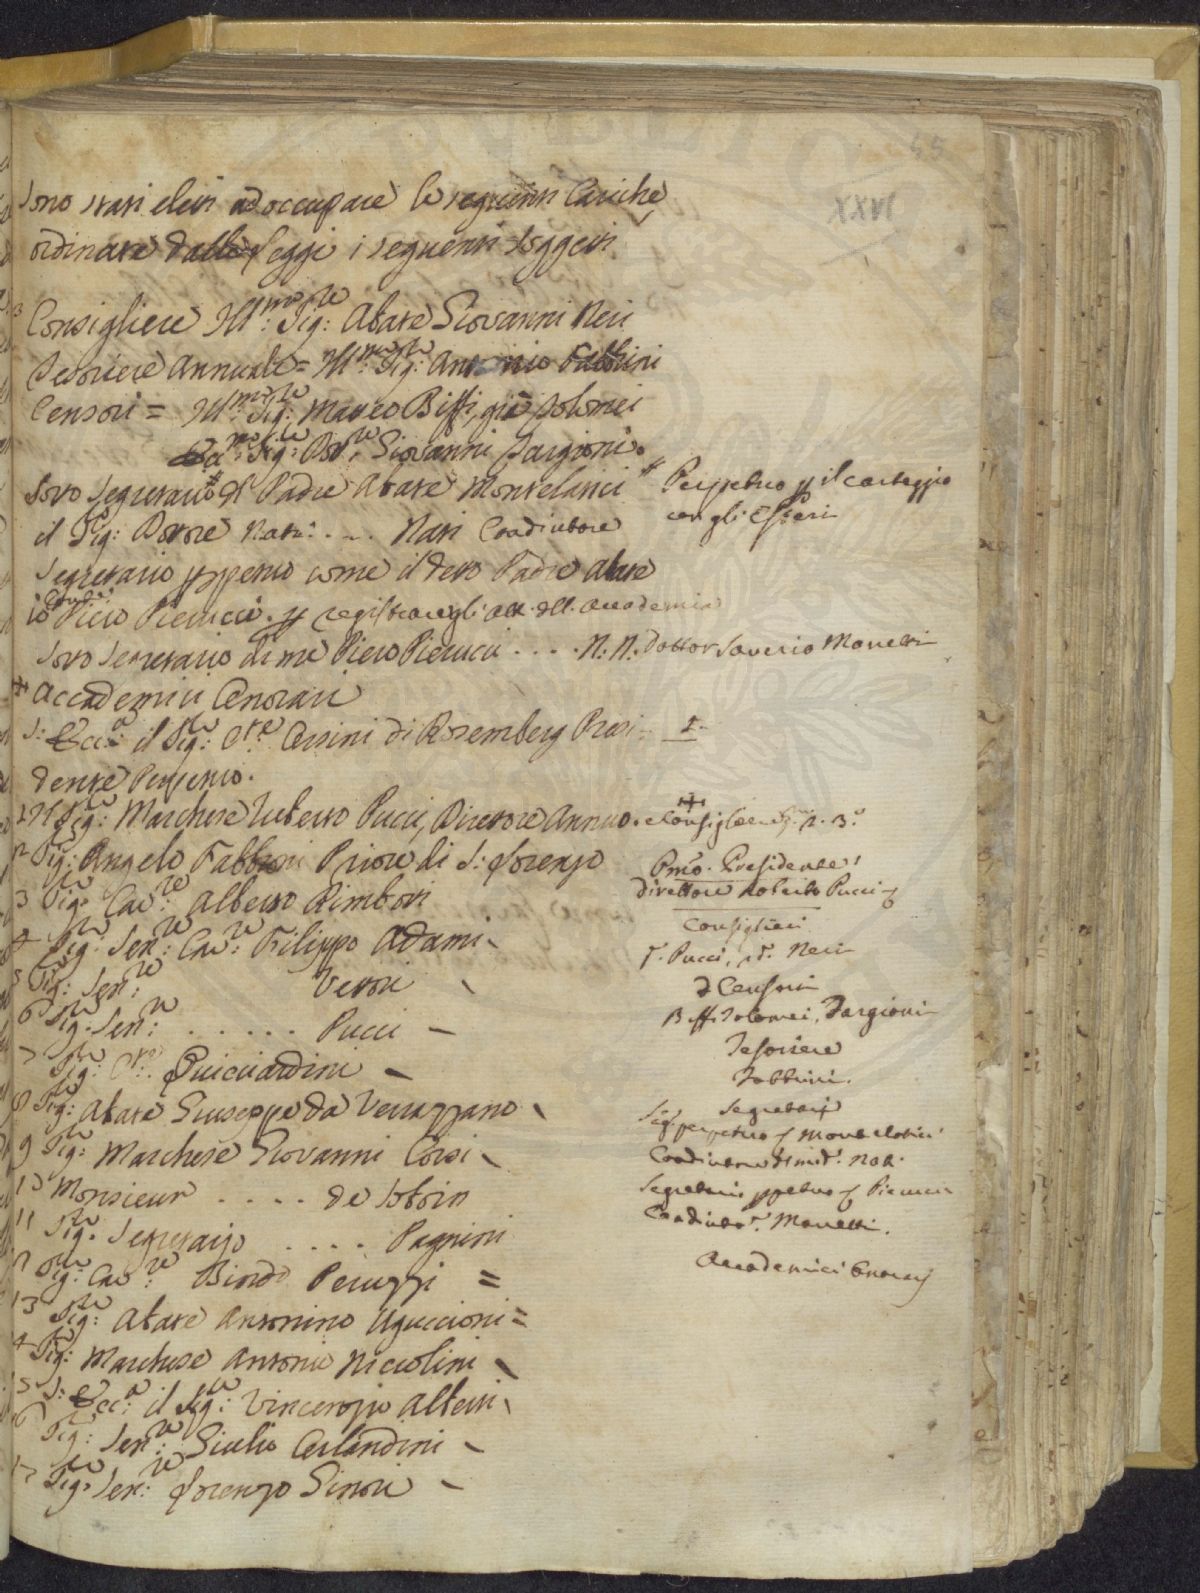 55
XXVI
Sono stati eletti ad occupare le seguenti Cariche
ordinate dalle Leggi i seguenti soggetti
Consigliere Ill.mo Sig.re Abate Giovanni Neri
Tesoriere Annuale = Ill.mo Sig.re Antonio Fabbrini
Censori = Ill.mo Sig.re Matteo Biffi, già Tolomei
Ecc.mo Sig.re Dot.re Giovanni Targioni.
Sotto Segretario # del Padre Abate Montelatici
# Perpetuo p il carteggio
con gli Esteri
il Sig: Dottore Natti .... Nati Coadiutore
Segretario perpetuo come il detto Padre Abate
io Piero Pierucci. p registrare gli atti dell. Accademia
Sotto Segretario di me Piero Pierucci .... N. N. Dottor Saverio Manetti
Accademici Onorari
S: Ecc.a il Sig.re C.te Orsini di Rosemberg Presi- 1
dente Perpetuo.
2 Ill Sig.re Marchese Ruberto Pucci, Direttore Annuo. e Consigliere
2 Sig.re Angelo Fabbroni Priore di S: Lorenzo
Pmo. Presidente
3 Sig.re Cav.re Alberto Rimbotti
direttore Roberto Pucci
4 Sig.re Sen.re Cav.re Filippo Adami
Consiglieri
Pucci, Neri
5 Sig.re Sen.re Vettori
Censori
6 Sig.re Sen.re ...... Pucci
Biffi Tolomei, Targioni
7 Sig.re C.te Guicciardini
Tesoriere
Fabbrini.
8 Sig.re Abate Giuseppe da Verrazzano
Segretarij
Seg. perpetuo Montelatici
9 Sig.re Marchese Giovanni Corsi
Coadiutore Nati.
10 Monsieur .... de Sotoin
Segretario ppetuo Pierucci
11 Sig.re Segretario .... Pagnini
Coadiuto.r Manetti.
12 Sig.re Cav.re Bindo Peruzzi =
Accademici Onorarj
13 Sig.re Abate Antonino Uguccioni =
14 Sig.re Marchese Antonio Niccolini
15 S: Ecc.a il Sig.re Vincenzio Alberti
16 Sig.re Sen.re Giulio Orlandini
17 Sig.re Sen.re Lorenzo Ginori